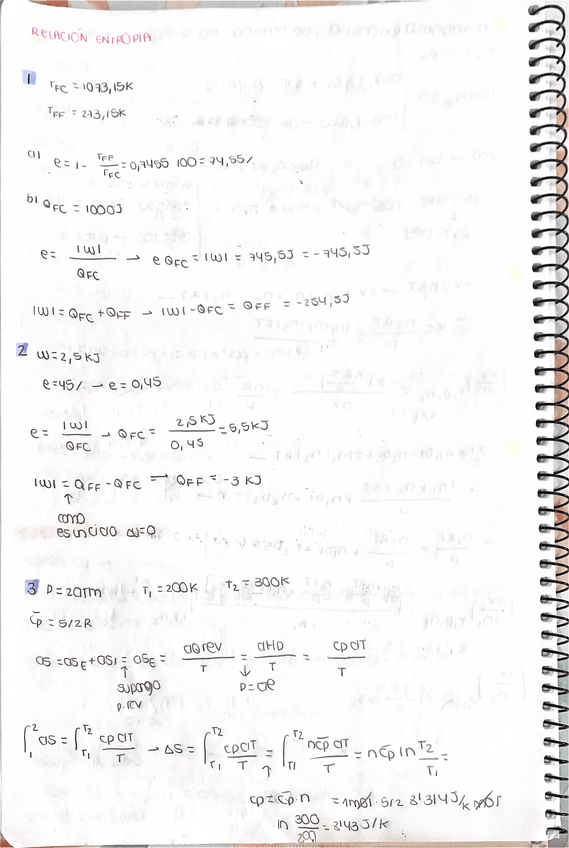 RELACIÓN ENTROPIA
1 TFC = 1073,15K
TFF = 273,15K
a) e = 1 - TFF/TFC = 0,7455 100 = 74,55%
b) QFC = 1000J
e = |W|/QFC → e QFC = |W| = 745,5J = -745,5J
|W| = QFC + QFF → |W| - QFC = QFF = -254,5J
2 W = 2,5 KJ
e = 45% → e = 0,45
e = |W|/QFC → QFC = 2,5 KJ/0,45 = 5,5KJ
|W| = QFF - QFC → QFF = -3 KJ
↑
como
es un ciclo ΔU=0
3 P = 20atm T1 = 200K T2 = 300K
C̄p = 5/2R
dS = dSE + dSI = dSE = dQrev/T = dHp/T = cp dT/T
↑ ↓
supongo P = cte
p. rev
∫₁² dS = ∫T1T2 cp dT/T → ΔS = ∫T1T2 cp dT/T = ∫T1T2 n c̄p dT/T = n c̄p ln T2/T1 =
↑
cp = c̄p · n = 1mol · 5/2 8'314 J/K mol
ln 300/200 = 8'43 J/K